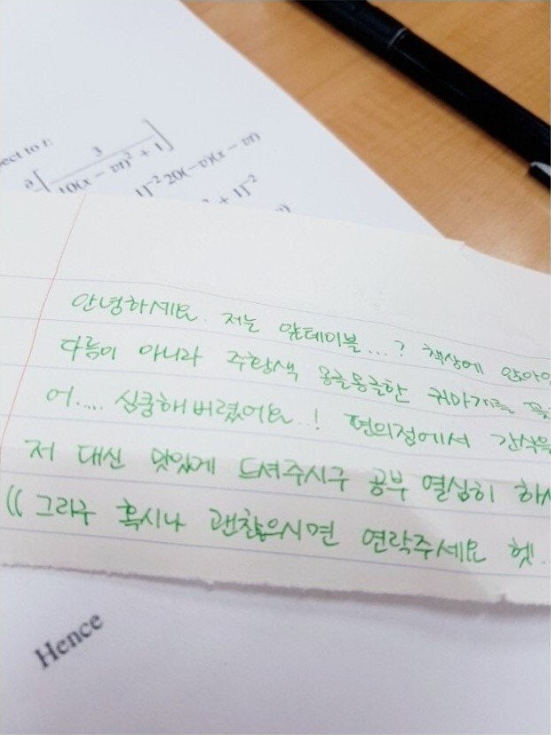 ect to t:
∂[3/(10(x − vt)² + 1)]
1]⁻² 20(−v)(x − vt)
² + 1]⁻²
안녕하세요. 저는 앞테이블...? 책상에 앉아
다름이 아니라 주황색 몽글몽글한 귀마개를 꽂
어.... 심쿵해버렸어요..! 편의점에서 간식을
저 대신 맛있게 드셔주시구 공부 열심히 하시
(( 그리구 혹시나 괜찮으시면 연락주세요 헷..
Hence